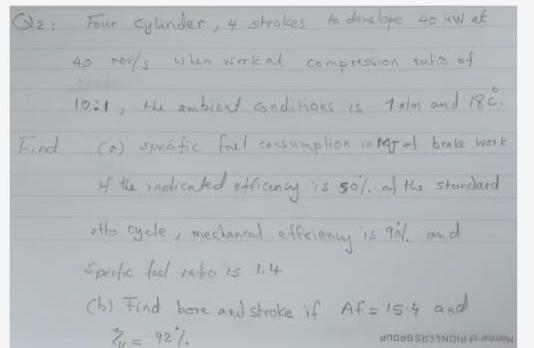 Q2: Four cylinder, 4 strokes to develope 40 kW at
40 rev/s when work at compression ratio of
10:1, the ambient conditions is 1 atm and 18 c°.
Find (a) specific fuel consumption in MJ of brake work
if the indicated efficency is 50% of the standard
otto cycle, mechancal effciency is 90% and
Specific fuel ratio is 1.4
(b) Find bore and stroke if Af = 15.4 and
= 92%.
Member of PIONEERS GROUP